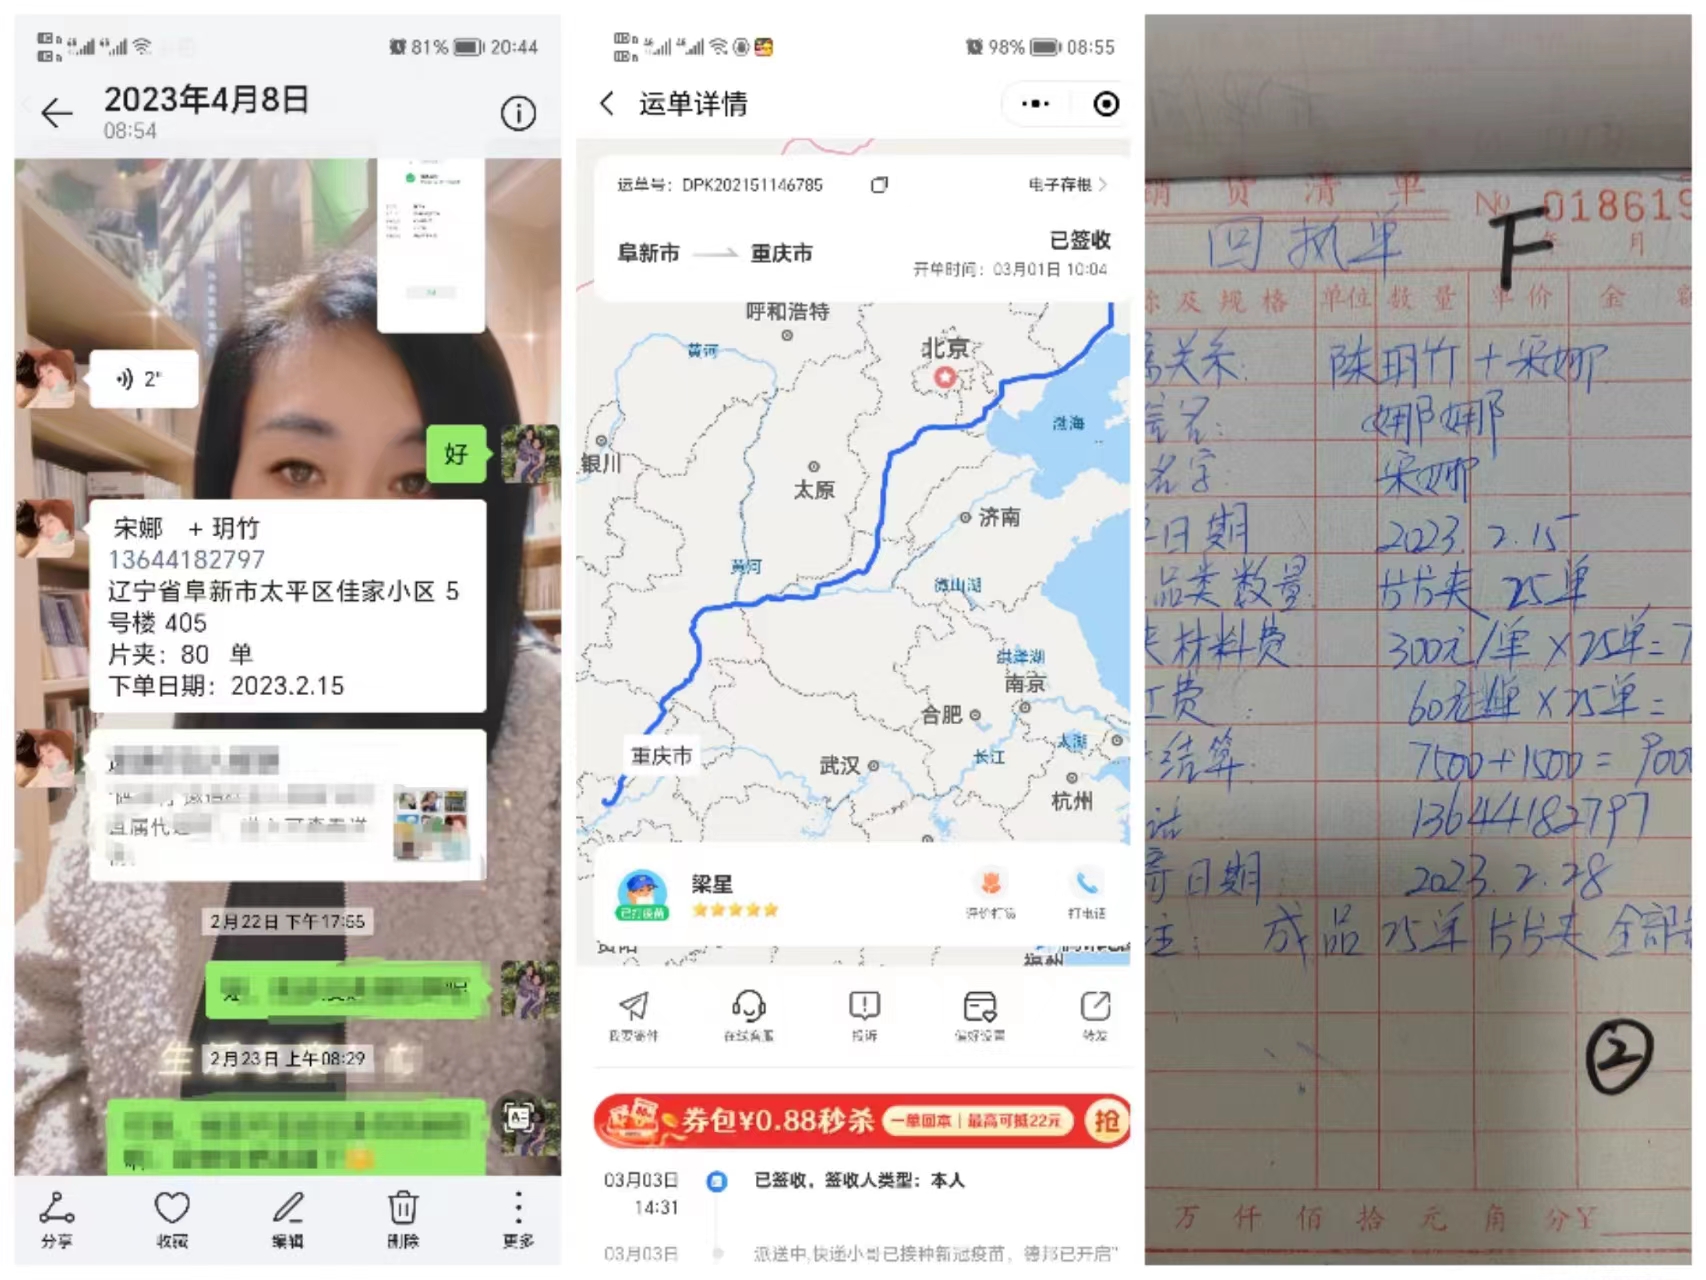 81% 20:44
2023年4月8日
08:54
2"
好
宋娜 + 玥竹
13644182797
辽宁省阜新市太平区佳家小区 5
号楼 405
片夹：80 单
下单日期：2023.2.15
2月22日 下午17:55
2月23日 上午08:29
分享
收藏
编辑
删除
更多
98% 08:55
运单详情
运单号：DPK202151146785
电子存根
阜新市
重庆市
已签收
开单时间：03月01日 10:04
呼和浩特
黄河
北京
渤海
银川
太原
济南
黄河
微山湖
洪泽湖
南京
合肥
重庆市
武汉
长江
太湖
杭州
梁星
已打疫苗
评价打赏
打电话
我要寄件
在线客服
投诉
偏好设置
转发
券包¥0.88秒杀
一单回本 | 最高可抵22元
抢
03月03日
14:31
已签收，签收人类型：本人
03月03日
派送中,快递小哥已接种新冠疫苗，德邦已开启"
销 货 清 单
No 018619
F
回执单
年 月
称及规格 单位 数量 单价 金 额
关系: 陈玥竹+宋娜
名: 娜娜
名字: 宋娜
日期 2023.2.15
品类数量 片片夹 25单
材料费 300元/单×25单=7
工费: 60元/单×25单=
结算: 7500+1500=900
话 13644182797
寄日期 2023.2.28
注: 成品25单片片夹全部
②
万 仟 佰 拾 元 角 分¥